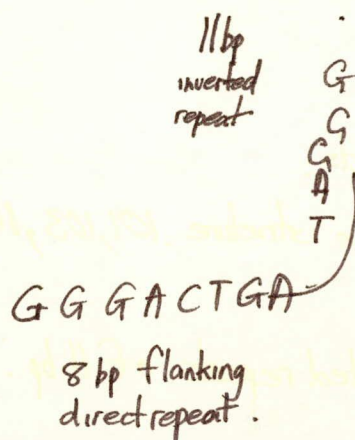 11bp
inverted
repeat
G
G
G
A
T
G G G A C T G A
8 bp flanking
direct repeat.